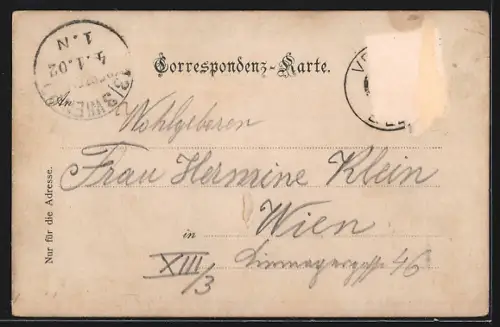 Correspondenz-Karte.
4.1.02
1.N
An
Wohlgeboren
Frau Hermine Klein
in Wien
XIII/3 46
Nur für die Adresse.